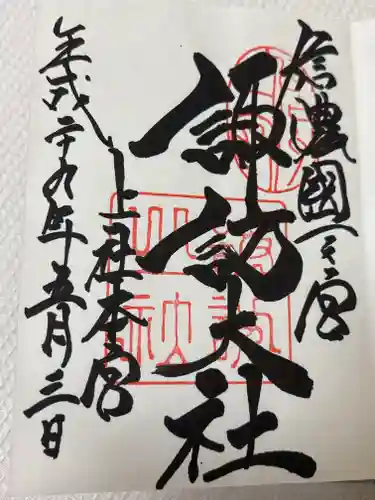 信濃國一之宮
諏訪大社
上社本宮
平成二十九年五月三日